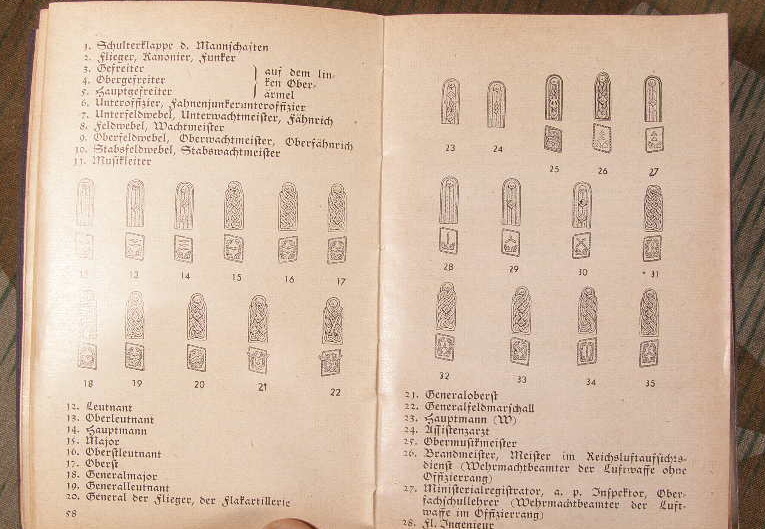 1. Schulterklappe d. Mannschaften
2. Flieger, Kanonier, Funker
3. Gefreiter
4. Obergefreiter
5. Hauptgefreiter
auf dem lin-
ken Ober-
ärmel
6. Unteroffizier, Fahnenjunkerunteroffizier
7. Unterfeldwebel, Unterwachtmeister, Fähnrich
8. Feldwebel, Wachtmeister
9. Oberfeldwebel, Oberwachtmeister, Oberfähnrich
10. Stabsfeldwebel, Stabswachtmeister
11. Musikleiter
13 14 15 16 17
18 19 20 21 22
12. Leutnant
13. Oberleutnant
14. Hauptmann
15. Major
16. Oberstleutnant
17. Oberst
18. Generalmajor
19. Generalleutnant
20. General der Flieger, der Flakartillerie
58
23 24 25 26 27
28 29 30 31
32 33 34 35
21. Generaloberst
22. Generalfeldmarschall
23. Hauptmann (W)
24. Assistenzarzt
25. Obermusikmeister
26. Brandmeister, Meister im Reichsluftaufsichts-
dienst (Wehrmachtbeamter der Luftwaffe ohne
Offizierrang)
27. Ministerialregistrator, a. p. Inspektor, Ober-
fachschullehrer (Wehrmachtbeamter der Luft-
waffe im Offizierrang)
28. Fl. Ingenieur